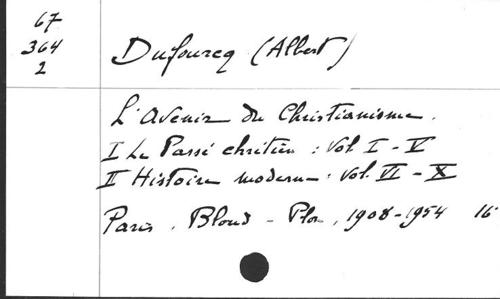 67
364
2
Dufourcq (Albert)
L'Avenir du Christianisme.
I Le Passé chrétien : Vol. I - V
II Histoire moderne : Vol. VI - X
Paris, Bloud - Plon, 1908-1954 16